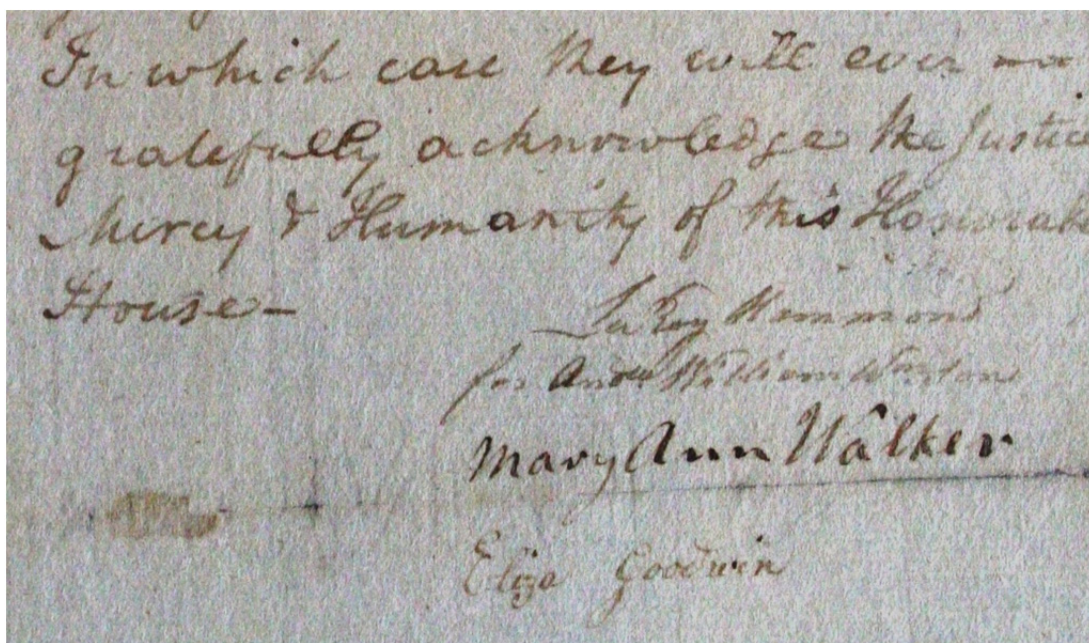 In which case they will ever
gratefully acknowledge the Justice
Mercy & Humanity of this Honorab
House-
LeRoy Hammond
for And William
Mary Ann Walker
Eliza Goodwin